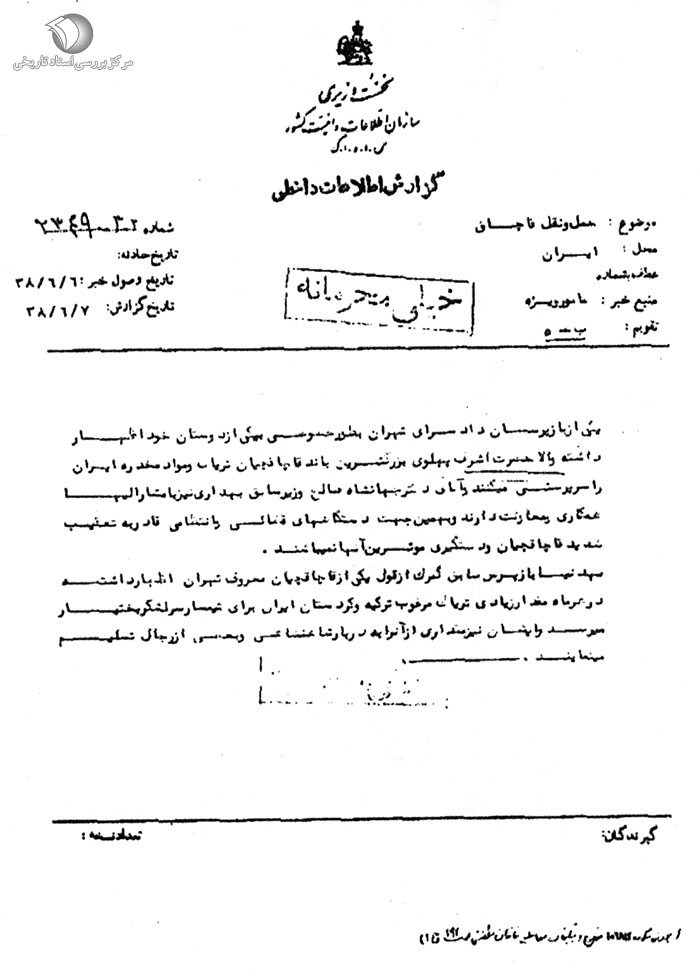 مرکز بررسی اسناد تاریخی
نخست وزیری
سازمان اطلاعات و امنیت کشور
س.ا.و.ا.ک
گزارش اطلاعات داخلی
موضوع : حمل و نقل قاچاق
محل : ایران
عطف بشماره
منبع خبر : مامور ویژه
تقویم : ب - ۵
شماره
تاریخ حادثه:
تاریخ وصول خبر : ۳۸/۶/۶
تاریخ گزارش: ۳۸/۶/۷
خیلی محرمانه
یکی از بازپرسان دادسرای تهران بطور خصوصی بیکی از دوستان خود اظهار
داشته والاحضرت اشرف پهلوی بزرگترین باند قاچاقچیان تریاک و مواد مخدره ایران
را سرپرستی میکنند و آقای دکتر جهانشاه صالح وزیر سابق بهداری نیز با مشارالیها
همکاری و معاونت دارند و بهمین جهت دستگاههای قضائی و انتظامی قادر به تعقیب
شدید قاچاقچیان و دستگیری موثرین آنها نمیباشند .
بازپرس سابق گمرک از قول یکی از قاچاقچیان معروف تهران اظهار داشته
در هر ماه مقدار زیادی تریاک مرغوب ترکیه و کردستان ایران برای تیمسار سرلشگر بختیار
میرسد و ایشان نیز مقداری از آنرا به دربار شاهنشاهی و بعضی از رجال تسلیم
مینمایند .
گیرندگان:
تعداد نسخه :